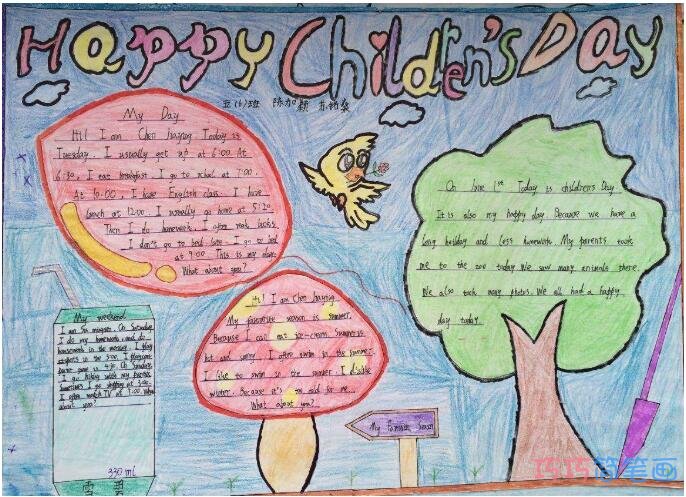 Happy Children's Day
五(6)班 陈加颖
My Day
Hi! I am Chen Today is
Tuesday. I usually get up at 6:00 At
6:30, I eat breakfast. I go to school at 7:00.
At 10:00, I have English class. I have
lunch at 12:00. I usually go home at 5:20
Then I do homework. I often read books
I don't go to bed late. I go to bed
at 9:00 This is my day.
What about you?
On June 1st Today is children's Day
It is also my happy day. Because we have a
long holiday and less homework. My parents took
me to the zoo today. We saw many animals there.
We also took many photos. We all had a happy
day today
Hi! I am Chen
My favourite season is summer.
Because I can eat ice-cream. Summer is
hot and sunny. I often swim in the summer.
I like to swim in the summer. I dislike
winter. Because it's too cold for me...
What about you?
My weekend
I am On Saturday,
I do my homework and do
housework in the morning. I play
sports in the I play
game at 4:30. On Sunday,
I go hiking with my
I go shopping at
I often watch TV at 7:00. What
about you?
330 ml
My Favourite Season
巧巧简笔画